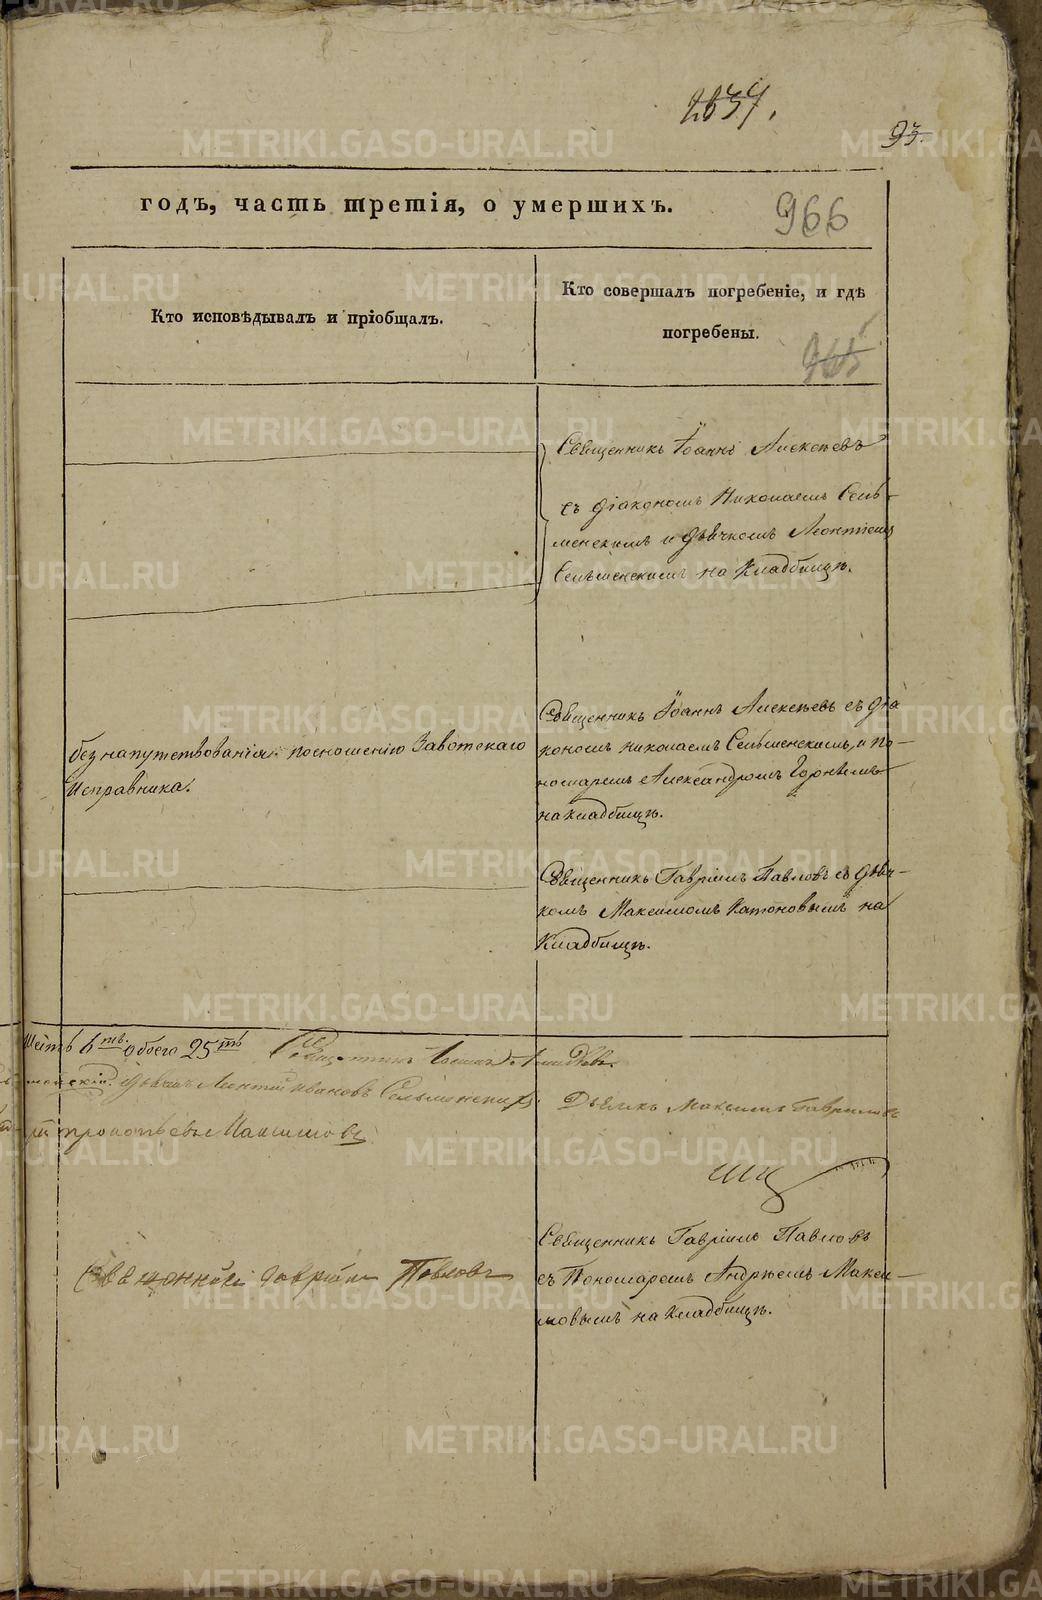 93.
годъ, часть третія, о умершихъ.
966
Кто исповѣдывалъ и пріобщалъ.
Кто совершалъ погребеніе, и гдѣ
погребены.
965
Священникъ Іоаннъ Алексѣевъ
съ діакономъ Николаемъ Сель-
менскимъ и дьячкомъ Леонтіемъ
Сельменскимъ на Кладбищѣ.
без напутствованія по сношенію Завотскаго
Исправника.
Священникъ Іоаннъ Алексѣевъ съ діа
кономъ Николаемъ Сельменскимъ, и по-
номаремъ Александромъ
на кладбищѣ.
Священникъ Гавріилъ Павловъ съ дьяч-
комъ Максимомъ на
Кладбищѣ.
Шесть 6ть обоего 25ть Священникъ Іоаннъ Алексѣевъ
Леонтій Ивановъ Сельменскихъ
Дьячекъ Максимъ Гавриловъ
Прокопьевъ
Священникъ Гавріилъ Павловъ
Священникъ Гавріилъ Павловъ
съ Пономаремъ Андрѣемъ Макси-
мовымъ на кладбищѣ.
METRIKI.GASO-URAL.RU